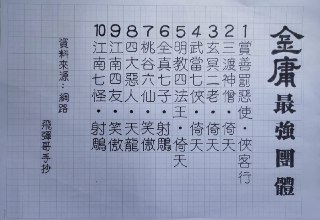 金庸最強團體
1賞善罰惡使·俠客行
2三渡神僧·倚天
3玄冥二老·倚天
4武當七俠·倚天
5明教四法王·倚天
6全真七子·射鵰
7桃谷六仙·笑傲
8四大惡人·天龍
9江南四友·笑傲
10江南七怪·射鵰
資料來源：網路
飛彈哥手抄